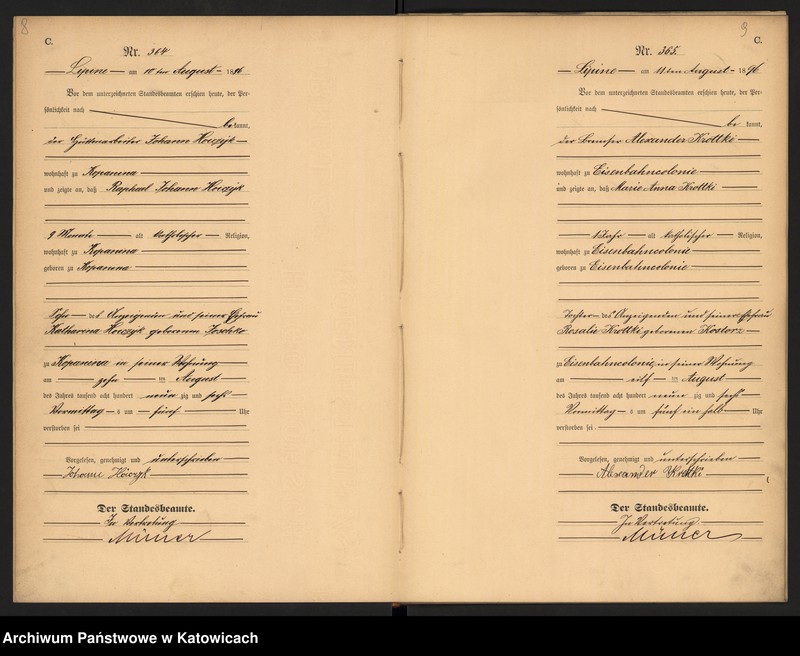 8
C.
Nr. 364
Lipine am 10ten August 1896
Vor dem unterzeichneten Standesbeamten erschien heute, der Per-
sönlichkeit nach
be kannt,
der Hüttenarbeiter Johann
wohnhaft zu Kopanina
und zeigte an, daß Raphael Johann
9 Monate alt katholischer Religion,
wohnhaft zu Kopanina
geboren zu Kopanina
Sohn des Anzeigenden und seiner Ehefrau
Katharina geborenen
zu Kopanina in seiner Wohnung
am zehn ten August
des Jahres tausend acht hundert neun zig und sechs
Vormittag s um fünf Uhr
verstorben sei
Vorgelesen, genehmigt und unterschrieben
Johann
Der Standesbeamte.
In Vertretung
9
C.
Nr. 365.
Lipine am 11ten August 1896
Vor dem unterzeichneten Standesbeamten erschien heute, der Per-
sönlichkeit nach
be kannt,
der Bremser Alexander Krottki
wohnhaft zu Eisenbahncolonie
und zeigte an, daß Marie Anna Krottki
1 Jahr alt katholischer Religion,
wohnhaft zu Eisenbahncolonie
geboren zu Eisenbahncolonie
Tochter des Anzeigenden und seiner Ehefrau
Rosalie Krottki geborenen Kostorz
zu Eisenbahncolonie, in seiner Wohnung
am eilf ten August
des Jahres tausend acht hundert neun zig und sechs
Vormittag s um fünf ein halb Uhr
verstorben sei.
Vorgelesen, genehmigt und unterschrieben
Alexander Krottki
Der Standesbeamte.
In Vertretung.
Archiwum Państwowe w Katowicach